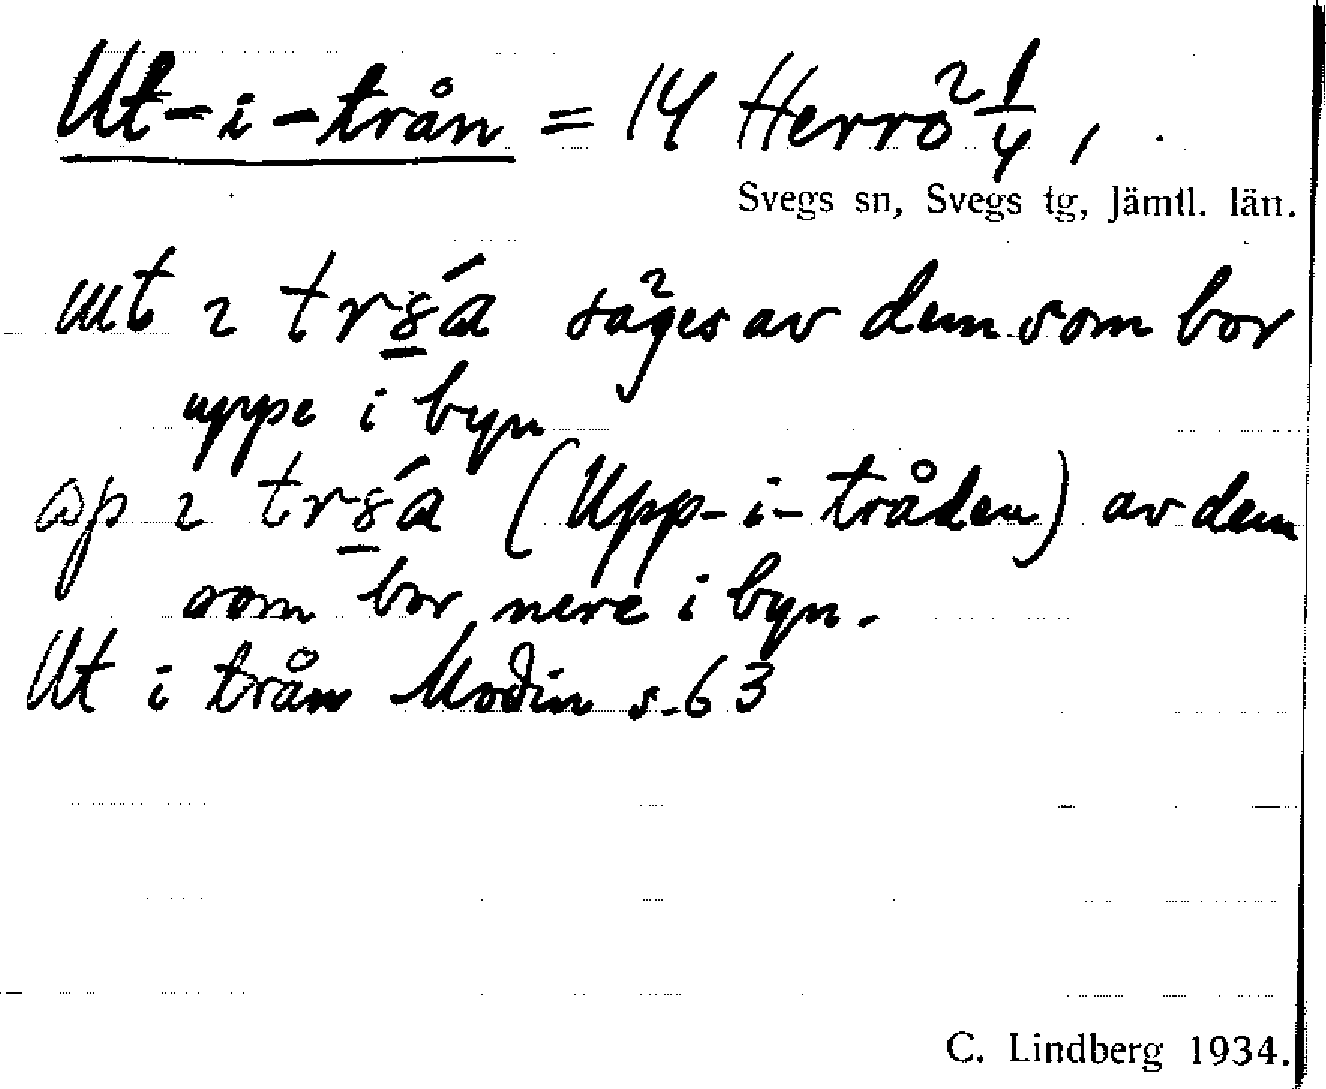 Ut-i-trån = 14 Herrö 2 1/4,
Svegs sn, Svegs tg, Jämtl. län.
säges av dem som bor
uppe i byn
(Upp-i-tråden) av dem
som bor nere i byn.
Ut i trån Modin s. 63
C. Lindberg 1934.